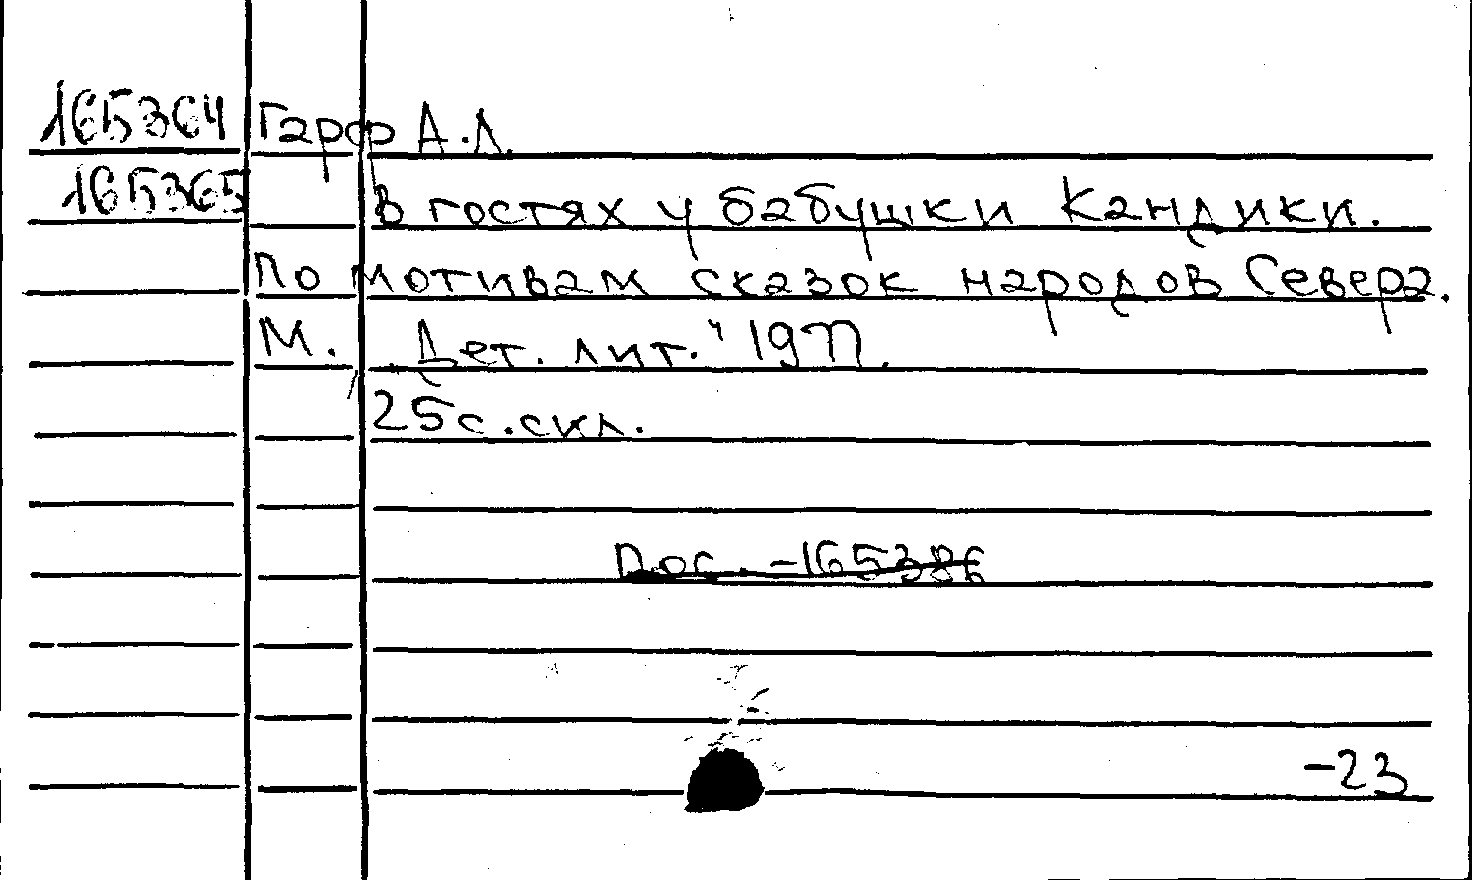 165364 Гарф А.Л.
165365 В гостях у бабушки Кандики.
По мотивам сказок народов Севера.
М. „Дет. лит." 1977.
25с. скл.
Пос. -165386
-23